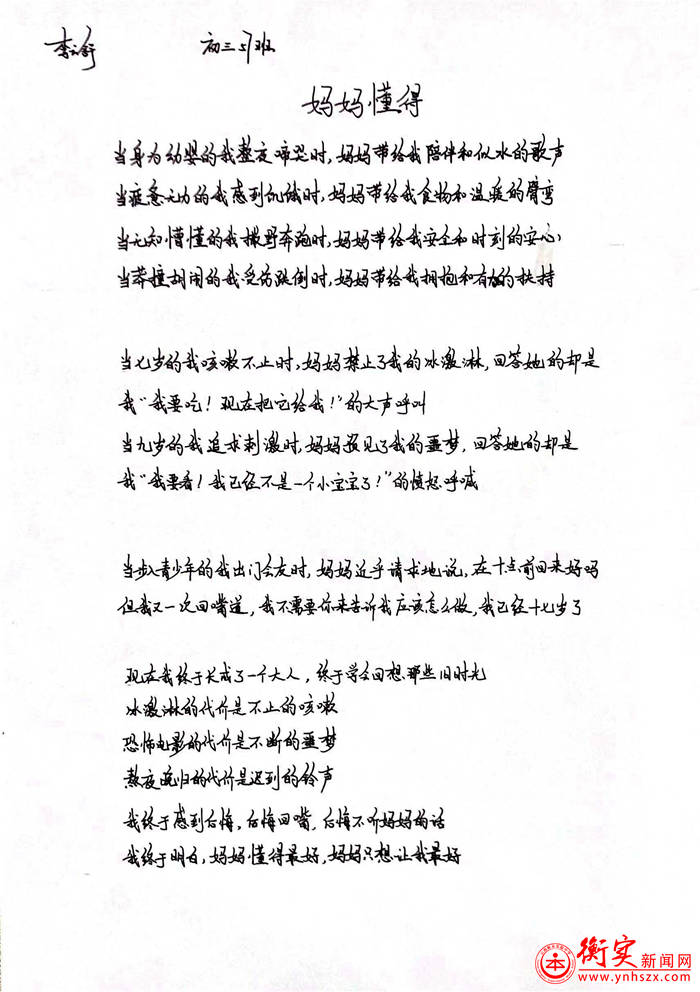 李云舒 初三57班
妈妈懂得
当身为幼婴的我整夜啼哭时,妈妈带给我陪伴和似水的歌声
当疲惫无力的我感到饥饿时,妈妈带给我食物和温暖的臂弯
当无知懵懂的我撒野奔跑时,妈妈带给我安全和时刻的安心
当莽撞胡闹的我受伤跌倒时,妈妈带给我拥抱和有力的扶持
当七岁的我咳嗽不止时,妈妈禁止了我的冰激淋,回答她的却是
我“我要吃!现在把它给我!”的大声呼叫
当九岁的我追求刺激时,妈妈预见了我的噩梦,回答她的却是
我“我要看!我已经不是一个小宝宝了!”的愤怒呼喊
当步入青少年的我出门会友时,妈妈近乎请求地说,在十点前回来好吗
但我又一次回嘴道,我不需要你来告诉我应该怎么做,我已经十七岁了
现在我终于长成了一个大人,终于学会回想那些旧时光
冰激淋的代价是不止的咳嗽
恐怖电影的代价是不断的噩梦
熬夜晚归的代价是迟到的铃声
我终于感到后悔,后悔回嘴,后悔不听妈妈的话
我终于明白,妈妈懂得最好,妈妈只想让我最好
衡实新闻网
www.ynhszx.com